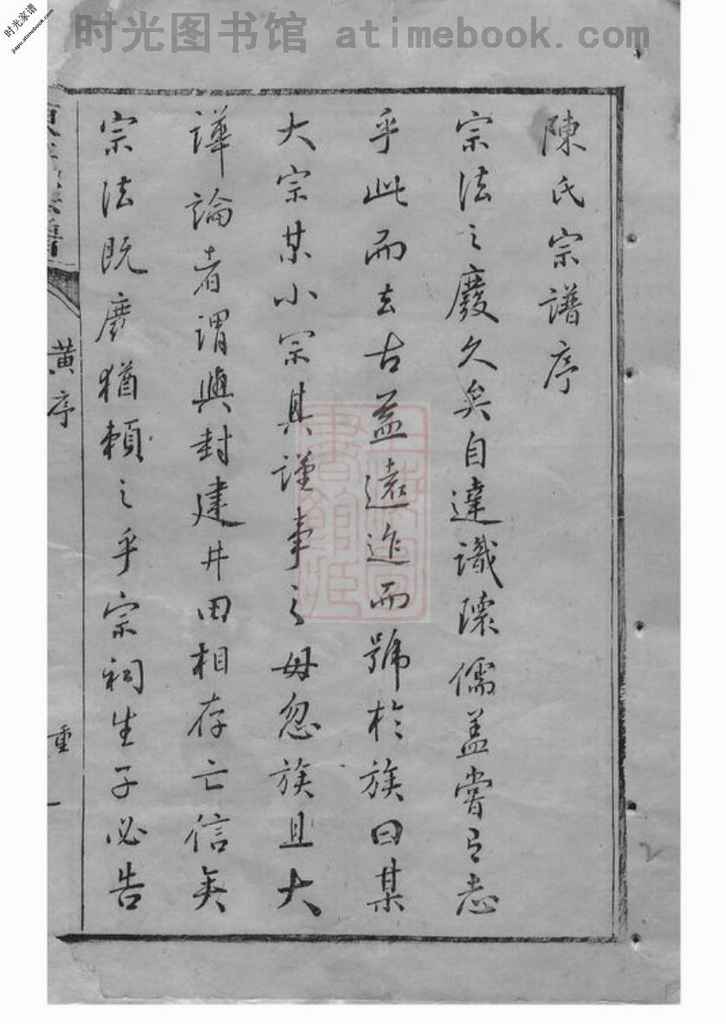 时光图书馆 atimebook.com
时光家谱
jiapu.atimebook.com
陳氏宗譜序
宗法之廢久矣自達識瓌儒蓋嘗有志
乎此而去古益遠迨而號於族曰某
大宗某小宗其謹事之毋忽族且大
譁論者謂與封建井田相存亡信矣
宗法既廢猶賴之乎宗祠生子必告
陳氏宗譜
黄序
重
一